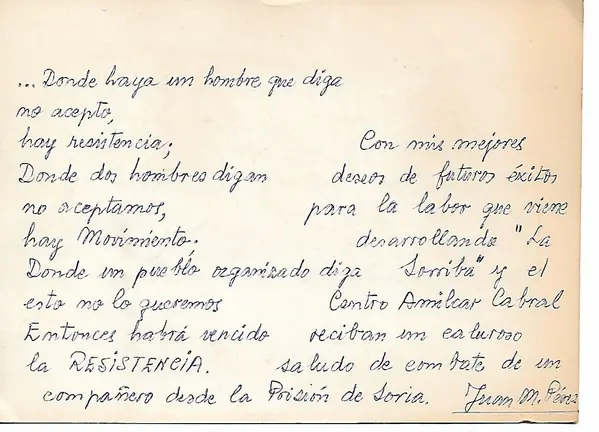 ...Donde haya un hombre que diga
no acepto,
hay resistencia;
Donde dos hombres digan
no aceptamos,
hay Movimiento.
Donde un pueblo organizado diga
esto no lo queremos
Entonces habrá vencido
la RESISTENCIA.
Con mis mejores
deseos de futuros éxitos
para la labor que viene
desarrollando "La
Sorriba" y el
Centro Amilcar Cabral
reciban un caluroso
saludo de combate de un
compañero desde la Prisión de Soria. Juan M. Pérez